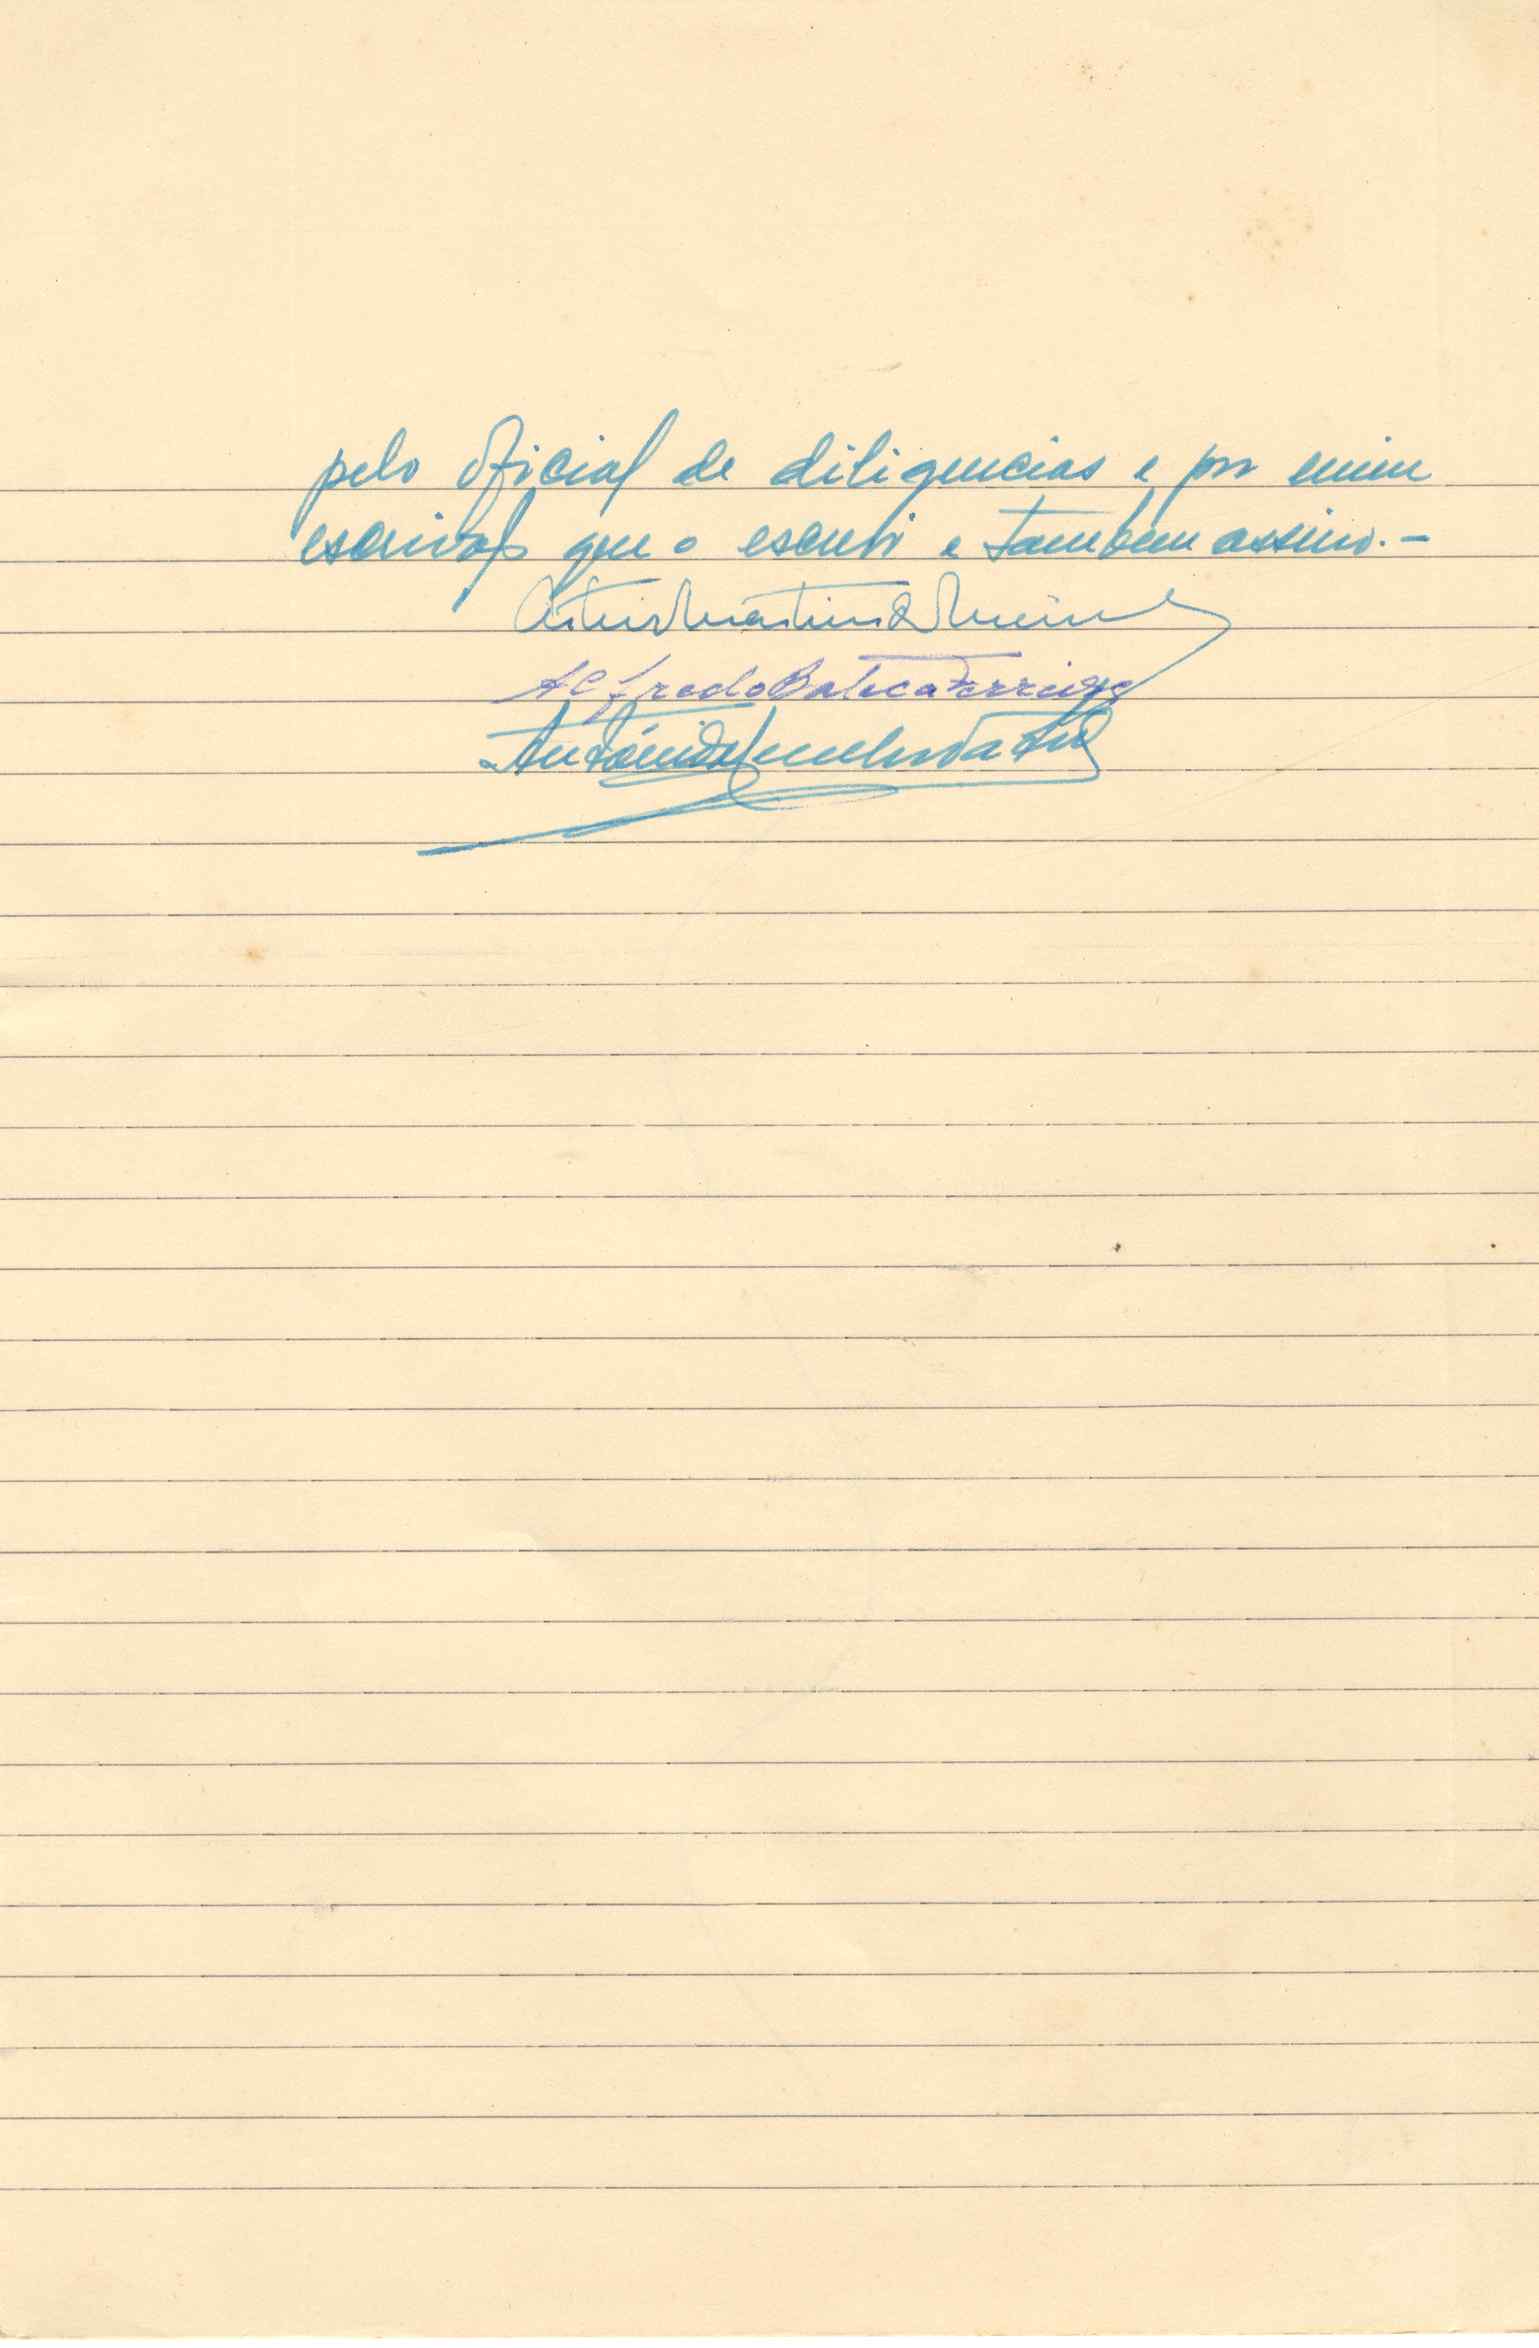 pelo oficial de diligencias e por mim
escrivão que o escrevi e tambem assino. -
Artur Martins
Alfredo Bateca Ferreira
António